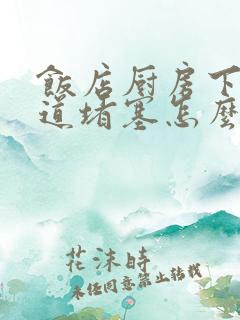 飯店厨房下
道堵塞怎麼
花沫時
未经同意禁止转载